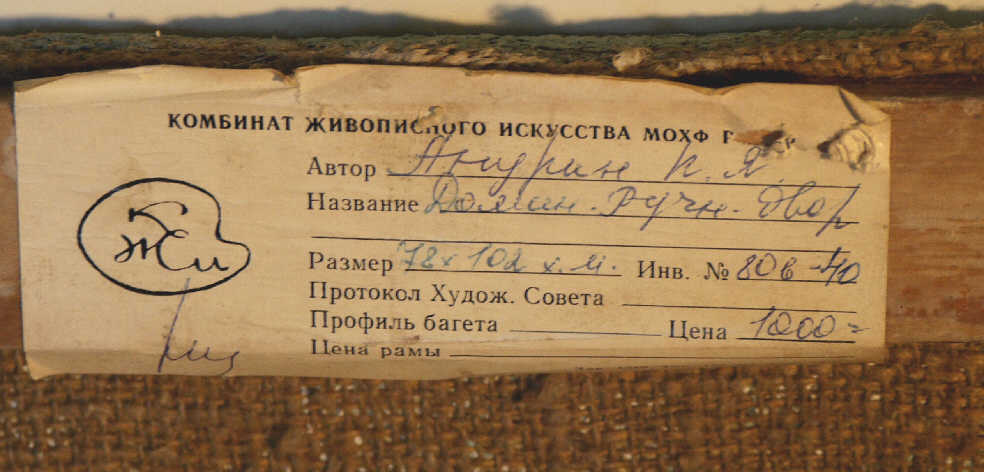 КОМБИНАТ ЖИВОПИСНОГО ИСКУССТВА МОХФ
Автор П. Я.
Название Домаш. Ручн. двор
Размер 78 х 102 х. м. Инв. № 80в-40
Протокол Худож. Совета
Профиль багета Цена 1000=
Цена рамы
КЖИ